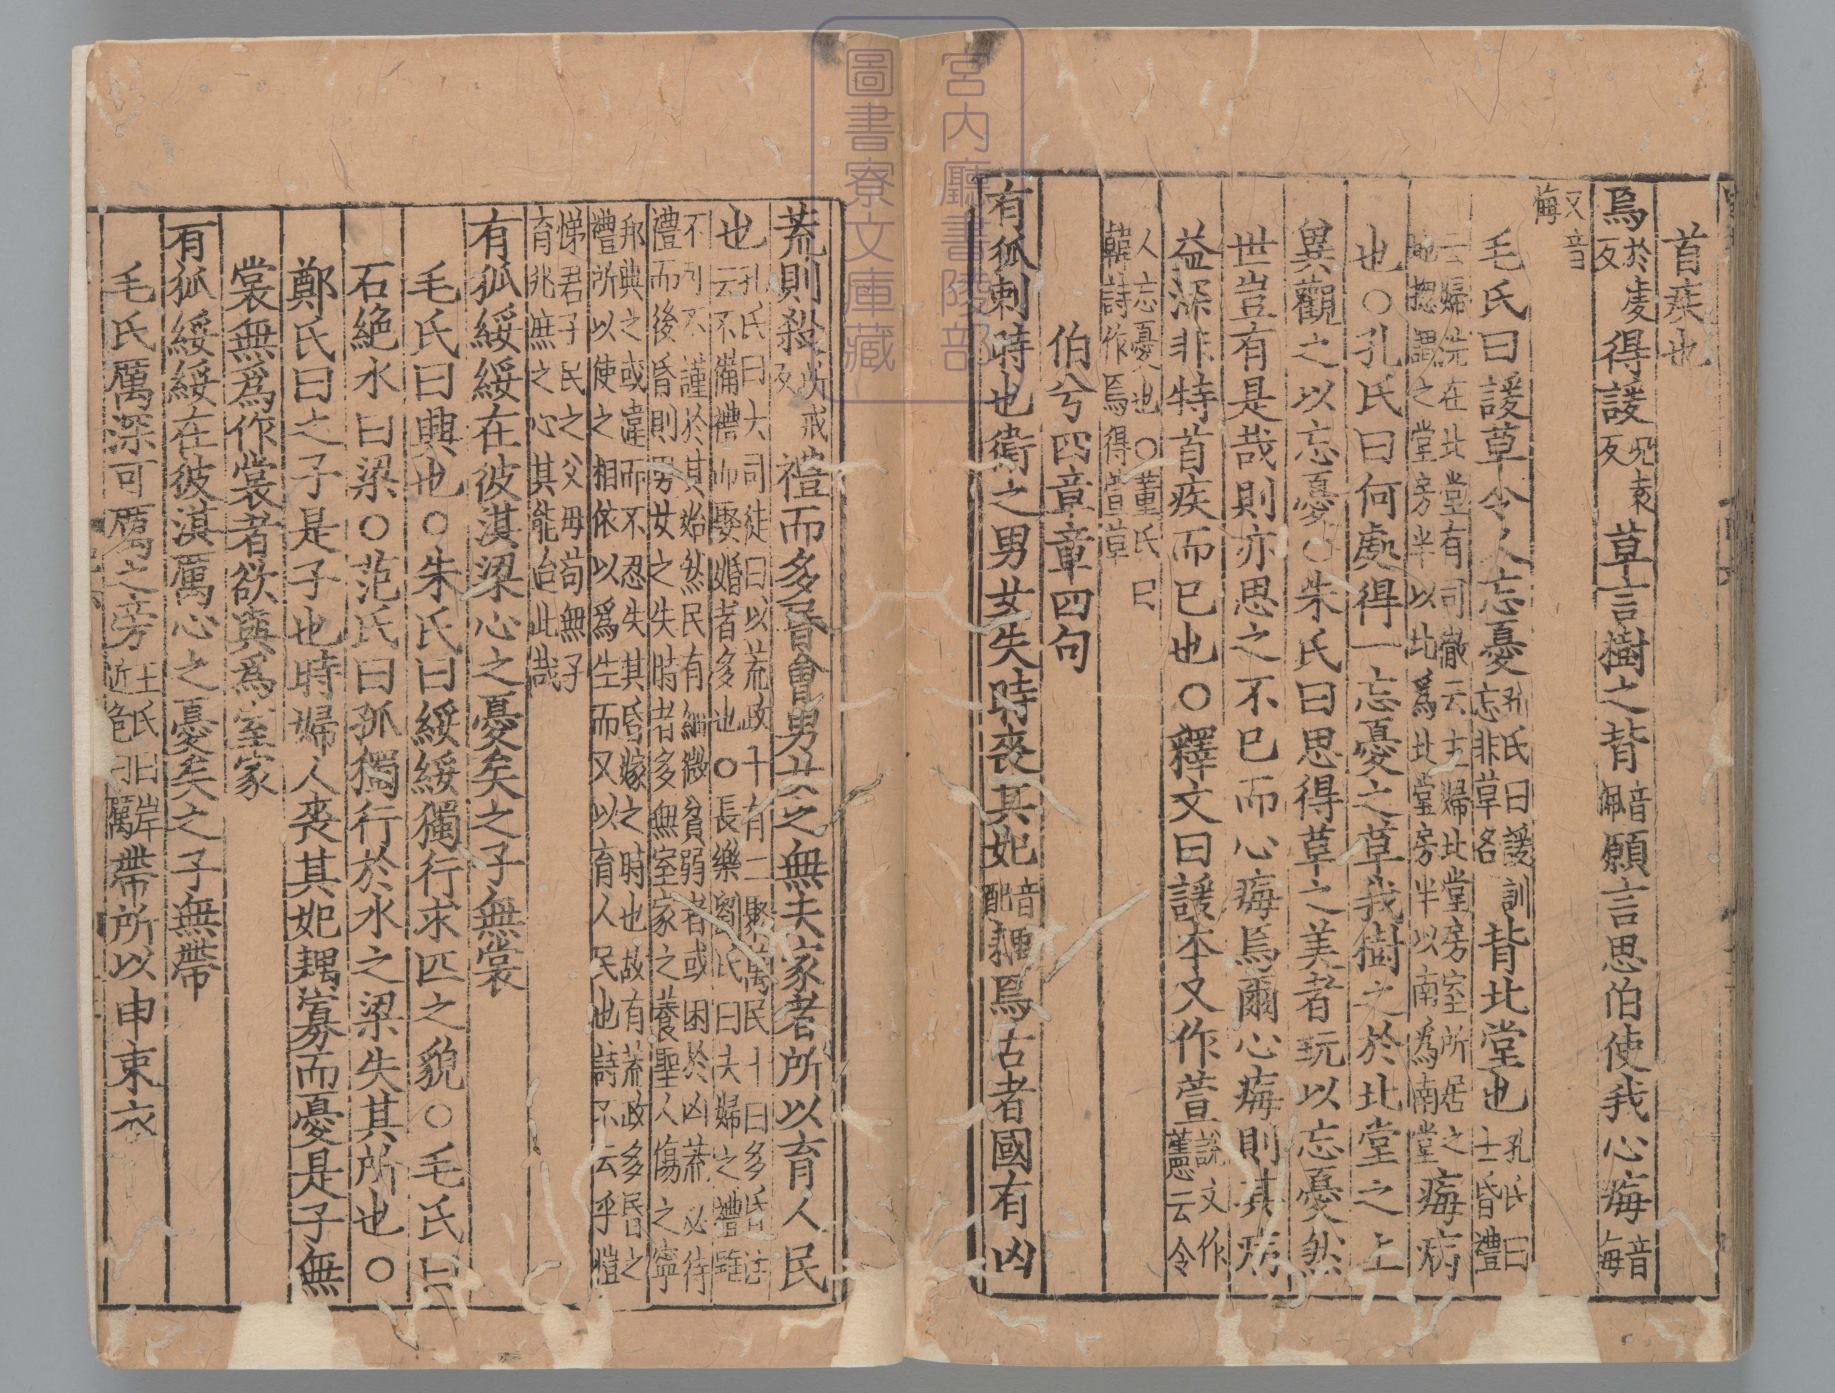 首疾也
焉於虔反得諼況袁反草言樹之背音佩願言思伯使我心痗音每
又音悔
毛氏曰諼草令人忘憂孔氏曰諼訓忘非草名背北堂也孔氏曰士昏禮
云婦洗在北堂有司徹云主婦北堂房室所居之
地揔謂之堂房半以北爲北堂房半以南爲南堂痗病
也○孔氏曰何處得一忘憂之草我樹之於北堂之上
異觀之以忘憂○朱氏曰思得草之美者玩以忘憂然
世豈有是哉則亦思之不已而心痗焉爾心痗則其病
益深非特首疾而已也○釋文曰諼本又作萱說文作藼云令
人忘憂也○董氏曰韓詩作焉得萱草
伯兮四章章四句
有狐刺時也衛之男女失時喪其妃音配耦焉古者國有凶
荒則殺所戒反禮而多昏會男女之無夫家者所以育人民
也孔氏曰大司徒曰以荒政十有二聚萬民十曰多昏注
云不備禮而娶婚者多也○長樂劉氏曰夫婦之禮雖
不可不謹於其始然民有細微貧弱者或困於凶荒必待
禮而後昏則男女之失時者多無室家之養聖人傷之寧
邦典之或違而不忍失其昏嫁之時也故有荒政多昏之
禮所以使之相依以爲生而又以育人民也詩不云乎愷
悌君子民之父母苟無子
育兆庶之心其能若此哉
有狐綏綏在彼淇梁心之憂矣之子無裳
毛氏曰興也○朱氏曰綏綏獨行求匹之貌○毛氏曰
石絶水曰梁○范氏曰狐獨行於水之梁失其所也○
鄭氏曰之子是子也時婦人喪其妃耦寡而憂是子無
裳無爲作裳者欲與爲室家
有狐綏綏在彼淇厲心之憂矣之子無帶
毛氏厲深可厲之旁王氏曰岸近危曰厲帶所以申束衣
宮內廳書陵部
圖書寮文庫藏